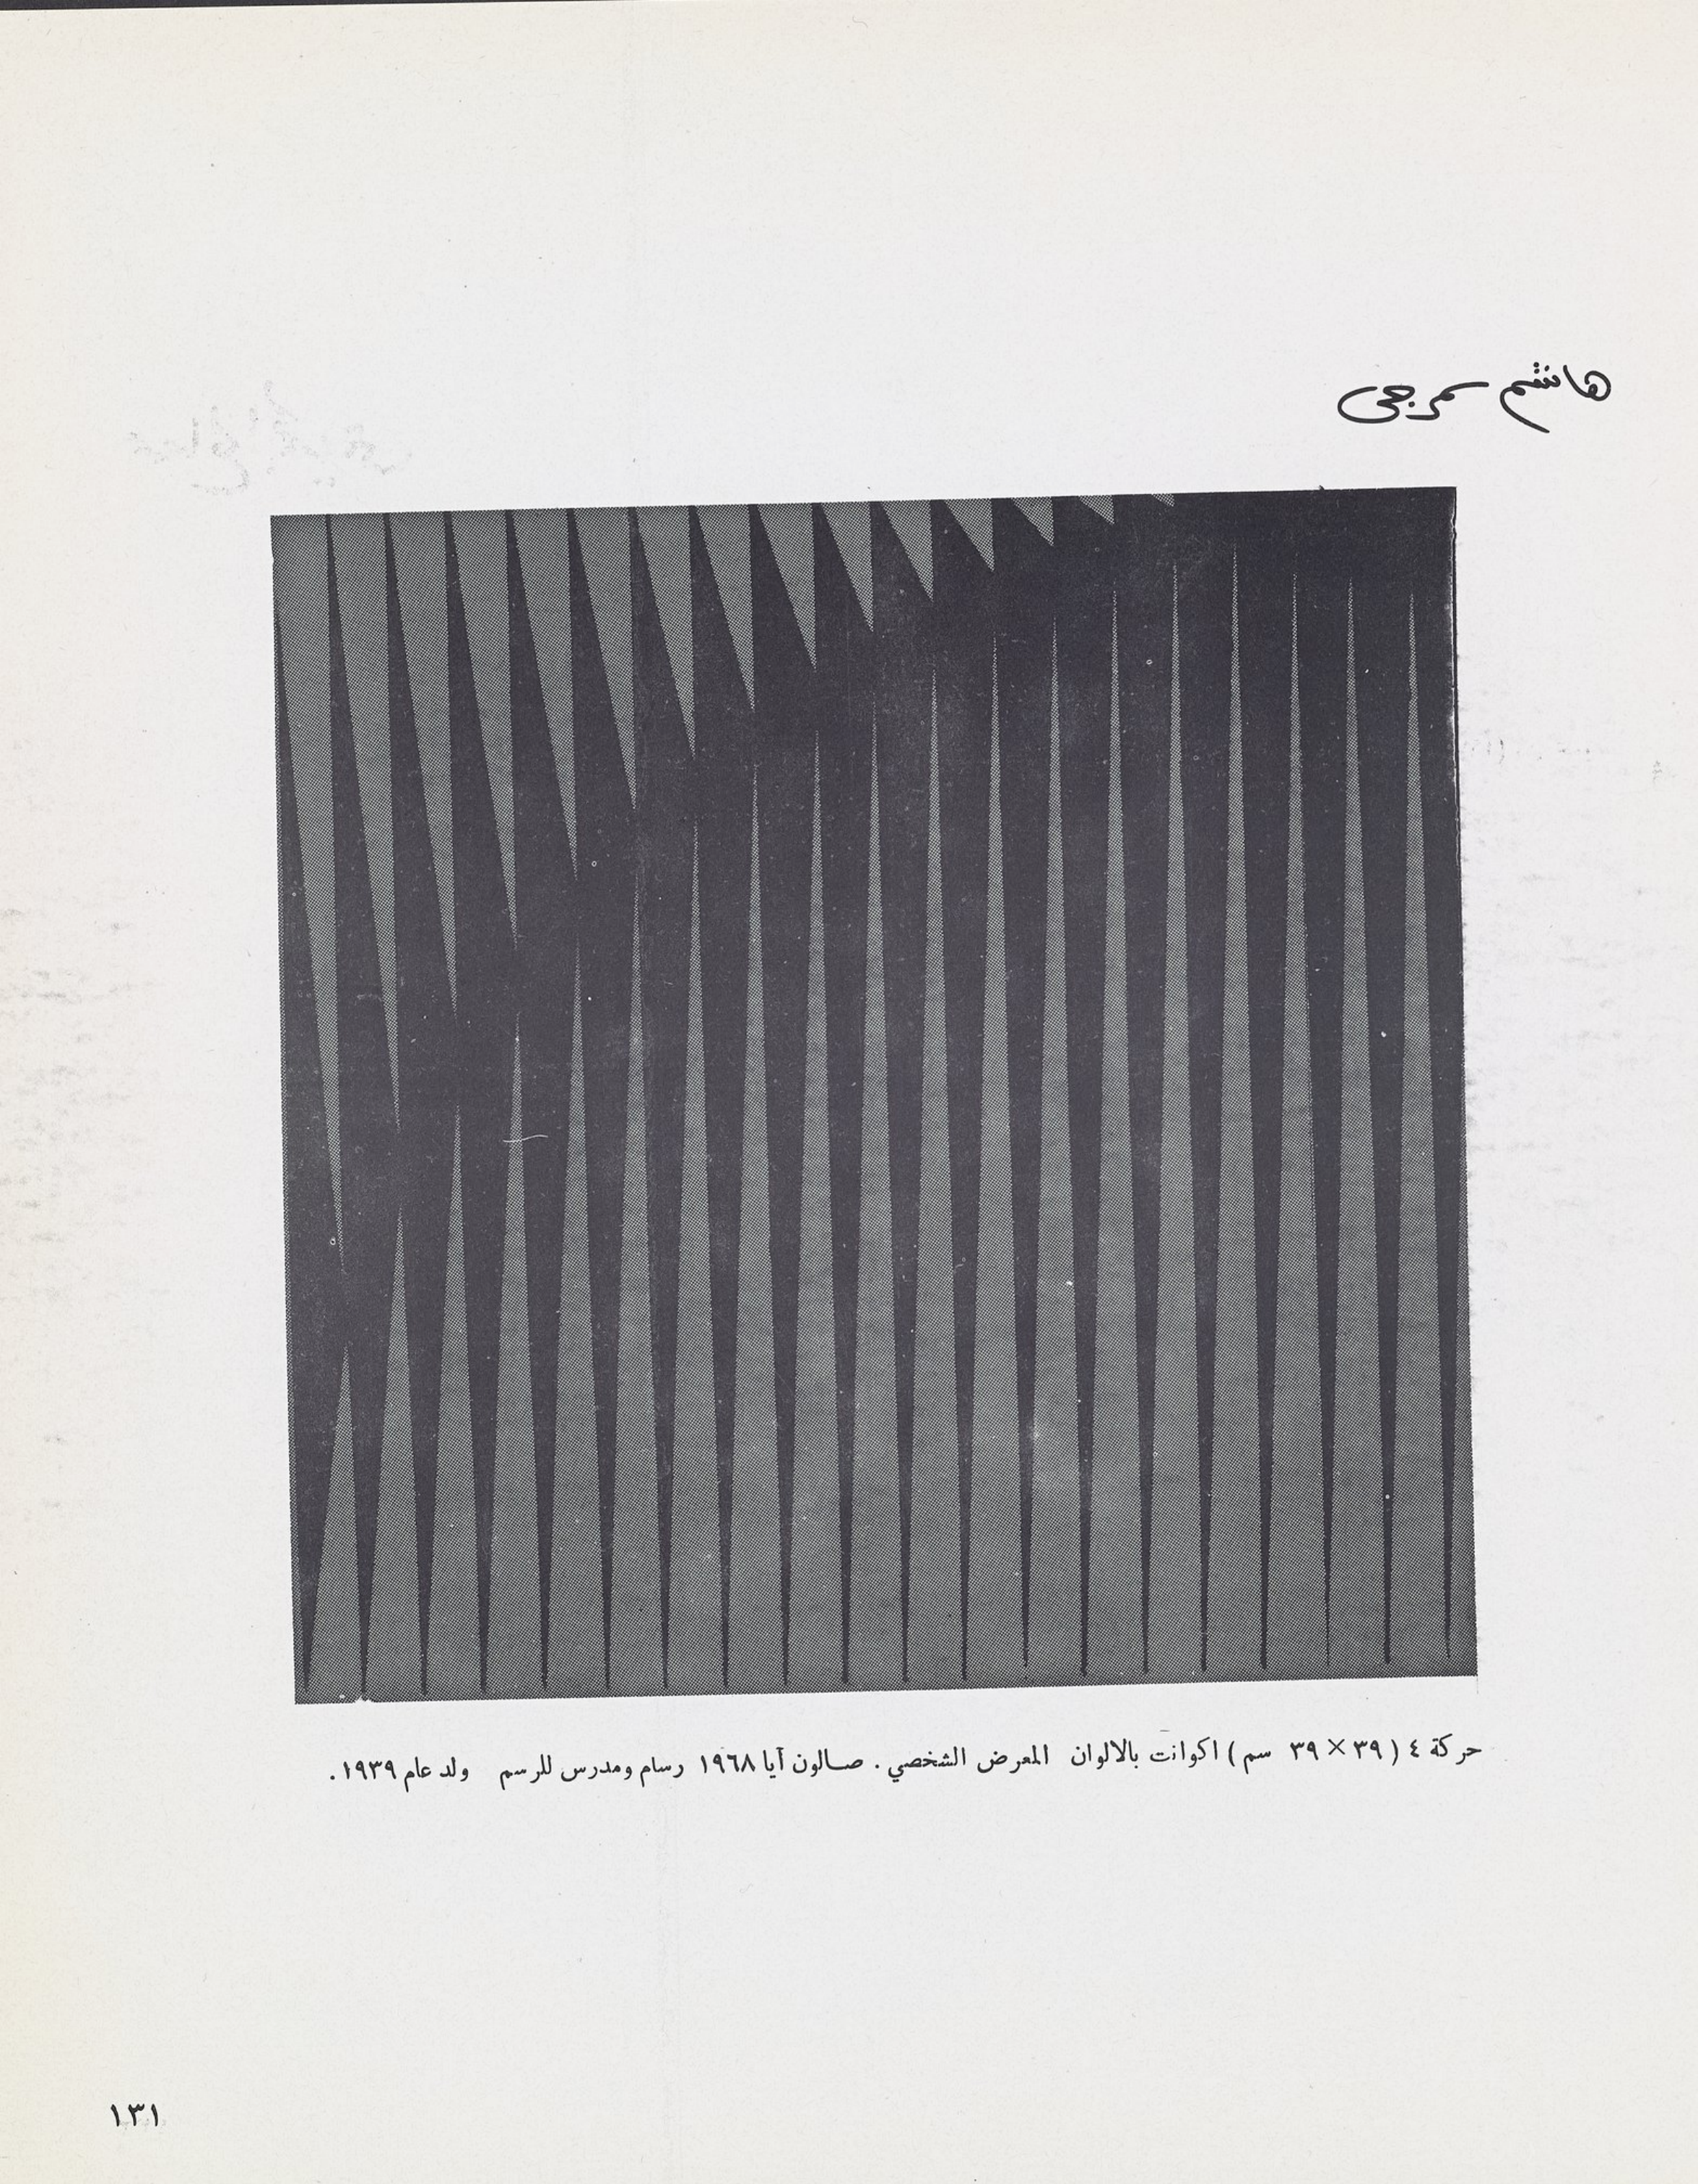 هاشم سمرجي
حركة ٤ ( ٣٩ × ٣٩ سم ) اكوانت بالالوان المعرض الشخصي . صالون آيا ١٩٦٨ رسام ومدرس للرسم ولد عام ١٩٣٩ .
١٣١